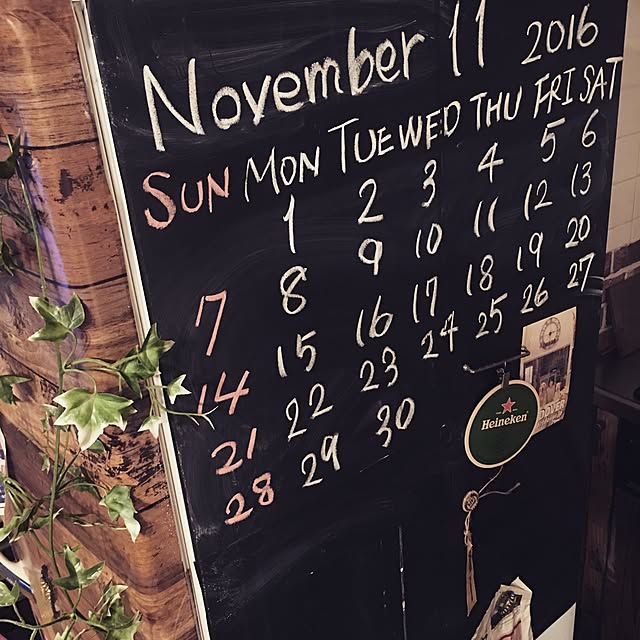 November 11 2016
SUN MON TUE WED THU FRI SAT
1 2 3 4 5 6
7 8 9 10 11 12 13
14 15 16 17 18 19 20
21 22 23 24 25 26 27
28 29 30
Heineken